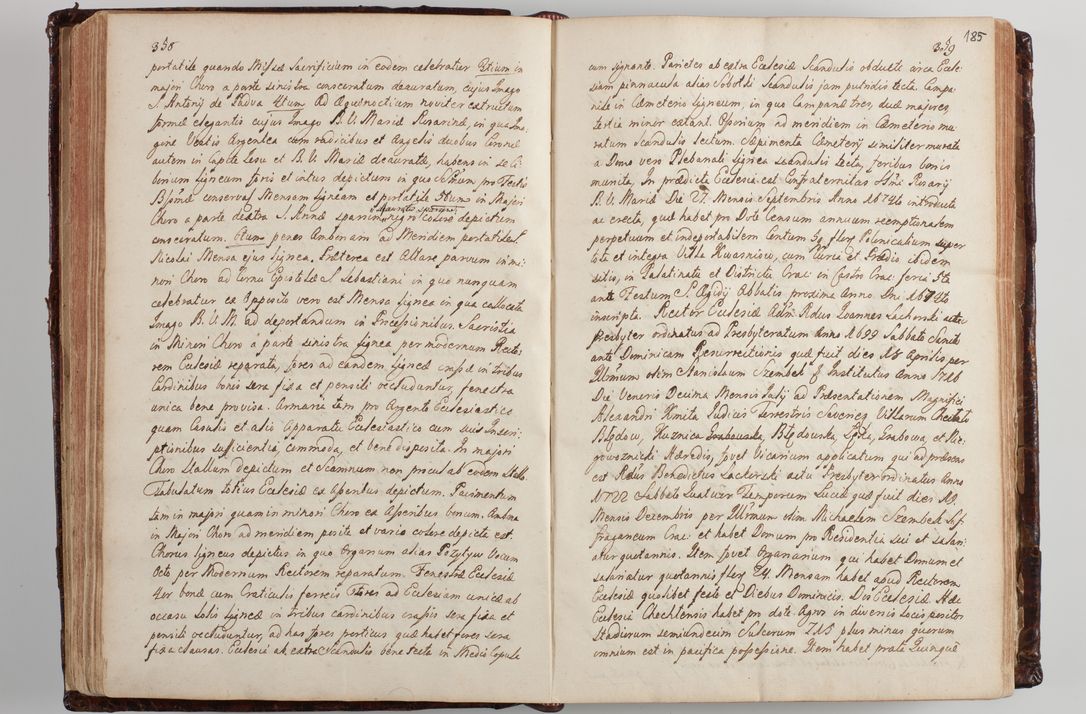 358
portatile quando Missæ Sacrificium in eodem celebratur Etium in
majori Choro a parte sinistra consecratum deauratum, cujus Imago
S. Antonij de Padua 4tum Ad Æquinoctium noviter extructum
formæ elegantis cujus Imago B. V. Mariæ Rosarinæ, in qua Ima,
gine Vestis Argentea cum radicibus et Angelis duobus Coronæ
autem in Capite Jesu et B. V. Mariæ deauratæ, habens in se Ci,
borium ligneum foris et intus depictum in quo pro Festo
conservat Mensam ligneam et portatile Item in Majori
Choro a parte dextra S. Annæ nigro colore depictum
consecratum. 6tum penes Ambonam ad Meridiem, portatile S.
Nicolai Mensa ejus lignea, Præterea est Altare parvum in mi,
nori Choro ad Cornu Epistolæ S. Sebastiani in quo nunquam
celebratur ex opposito vero est Mensa lignea in qua collocata
Imago B. V. M. ad deportandum in Processionibus. Sacristia
in Minori Choro a parte sinistra lignea per modernum Recto,
rem Ecclesiæ reparata, fores ad eandem ligneæ in tribus
Cardinibus bonis sera fixa et pensili recluduntur, fenestra
unica bene provisa. Armaria tam pro Argento Ecclesiastico
quam Casulis et alio Apparatu Ecclesiastico cum suis Inscri,
ptionibus sufficientia, commoda, et bene disposita. In majori
Choro Stallum depictum et Scamnum non procul ab eodem Stallo
Tabulatum totius Ecclesiæ ex Asseribus depictum. Pavimentum
tam in majori quam in minori Choro ex Asseribus bonum. Ambona
in Majori Choro ad meridiem posita et vario colore depicta est.
Chorus ligneus depictus in quo Organum alias Pozytyw Vocum
Octo per Modernum Rectorem reparatum. Fenestræ Ecclesiæ
4or bonæ cum Craticulis ferreis Fores ad Ecclesiam unicæ ab
occasu Solis ligneæ in tribus cardinibus crassis sera fixa et
pensili recluduntur, ad has fores porticus quæ habet fores sera
fixa clausas. Ecclesia ab extra Scandulis bene tecta in Medio Copula
359
185
cum signanto. Parietes ab extra Ecclesiæ Scandulis obductæ circa Eccle,
siam pinnacula alias Sobotki Scandulis jam putridis tecta. Campa
nile in Cæmeterio ligneum, in quo Campanæ tres, duæ majores,
tertia minor extant. Ossorium ad meridiem in Cæmeterio mu,
ratum Scandulis tectum. Sæpimenta Cæmeterij similiter murata
a Domo vero Plebanali lignea scandulis tecta, foribus bonis
munita, In prædicta Ecclesia est Confraternitas SSmi Rosarij
B. V. Mariæ Die 27. Mensis Septembris Anno 1674to introducta
ac erecta, quæ habet pro Dote Censum annuum reemptionalem
perpetuum et indeportabilem Centum 30 flor Polonicalium super
tota et integra Villa Kwasniow, cum Curia et Prædio ibidem
sitis, in Palatinatu et Districtu Crac: in Castro Crac: feria 5ta
ante Festum S. Ægidij Abbatis proxima Anno Dni 1674to
inscripta. Rector Ecclesiæ Adm: Rdus Joannes Lachorski actu
Presbyter ordinatus ad Presbyteratum Anno 1699 Sabbato Sancto
ante Dominicam Resurrectionis quæ fuit dies 18 Aprilis per
Illmum olim Stanislaum Szembek Institutus Anno 1716
Die Veneris Decima Mensis Julij ad Præsentationem Magnifici
Alexandri Kmita Judicis Terrestris Villarum
Błędow, Kuznica Grabowska, Błędowska, Łęka, Grabowa, et Nie,
gowoznicki Hæredis, fovet Vicarium applicatum qui ad præsens
est Rdus Benedictus Lachorski actu Presbyter ordinatus Anno
1722 Sabbato Quatuor Temporum Luciæ quæ fuit dies 19
Mensis Decembris per Illmum olim Michaelem Szembek Suf,
fraganeum Crac: et habet Domum pro Residentia sui et salari,
atur quotannis. Item fovet Organarium qui habet Domum et
salariatur quotannis flor 24. Mensam habet apud Rectorem
Ecclesiæ quolibet festo et Diebus Dominicis. Dos Ecclesiæ Hæc
Ecclesia Chechlensis habet pro dote Agros in diversis locis positos
Stadiorum semiundecim Sulcorum 218 plus minus quorum
omnium est in pacifica possessione. Item habet prata Quinque